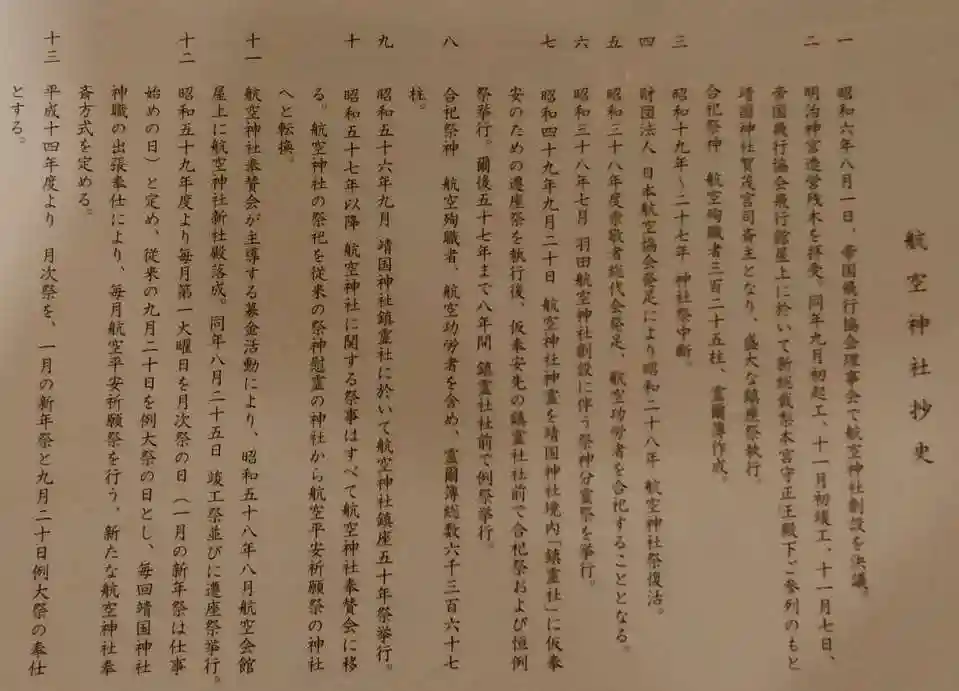 航空神社抄史
一 昭和六年八月一日、帝国飛行協会理事会で航空神社創設を決議。
二 明治神宮造営残木を拝受、同年九月初起工、十一月初竣工、十一月七日、
帝国飛行協会飛行館屋上に於いて新総裁梨本宮守正王殿下ご参列のもと
靖国神社賀茂宮司斎主となり、盛大な鎮座祭執行。
合祀祭神 航空殉職者三百二十五柱、霊爾簿作成。
三 昭和十九年~二十七年 神社祭中断。
四 財団法人 日本航空協会発足により昭和二十八年 航空神社祭復活。
五 昭和三十八年度崇敬者総代会発足、航空功労者を合祀することとなる。
六 昭和三十八年七月 羽田航空神社創設に伴う祭神分霊祭を挙行。
七 昭和四十九年九月二十日 航空神社神霊を靖国神社境内「鎮霊社」に仮奉
安のための遷座祭を執行後、仮奉安先の鎮霊社社前で合祀祭および恒例
祭挙行。爾後五十七年まで八年間 鎮霊社社前で例祭挙行。
八 合祀祭神 航空殉職者、航空功労者を含め、霊爾簿総数六千三百六十七
柱。
九 昭和五十六年九月 靖国神社鎮霊社に於いて航空神社鎮座五十年祭挙行。
十 昭和五十七年以降 航空神社に関する祭事はすべて航空神社奉賛会に移
る。航空神社の祭祀を従来の祭神慰霊の神社から航空平安祈願祭の神社
へと転換。
十一 航空神社奉賛会が主導する募金活動により、昭和五十八年八月航空会館
屋上に航空神社新社殿落成。同年八月二十五日 竣工祭並びに遷座祭挙行。
十二 昭和五十九年度より毎月第一火曜日を月次祭の日(一月の新年祭は仕事
始めの日)と定め、従来の九月二十日を例大祭の日とし、毎回靖国神社
神職の出張奉仕により、毎月航空平安祈願祭を行う。新たな航空神社奉
斎方式を定める。
十三 平成十四年度より 月次祭を、一月の新年祭と九月二十日例大祭の奉仕
とする。